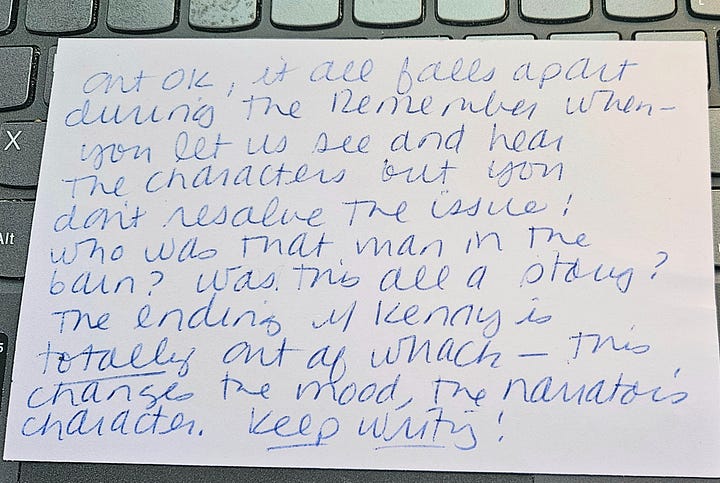 out OK, it all falls apart
during the Remember when –
you let us see and hear
the characters but you
don't resolve the issue!
who was that man in the
barn? was this all a story?
The ending w/ Kenny is
totally out of whack — this
changes the mood, the narrator's
character. Keep writing!
X
Alt